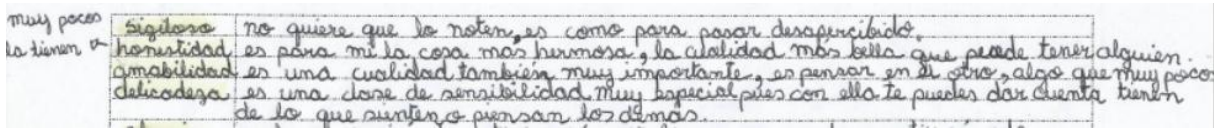 muy pocos
la tienen
sigiloso no quiere que lo noten, es como para pasar desapercibido.
honestidad es para mi la cosa mas hermosa, la cualidad más bella que puede tener alguien.
amabilidad es una cualidad también muy importante, es pensar en el otro, algo que muy pocos
delicadeza es una clase de sensibilidad muy especial pues con ella te puedes dar cuenta tienen
de lo que sienten o piensan los demás.